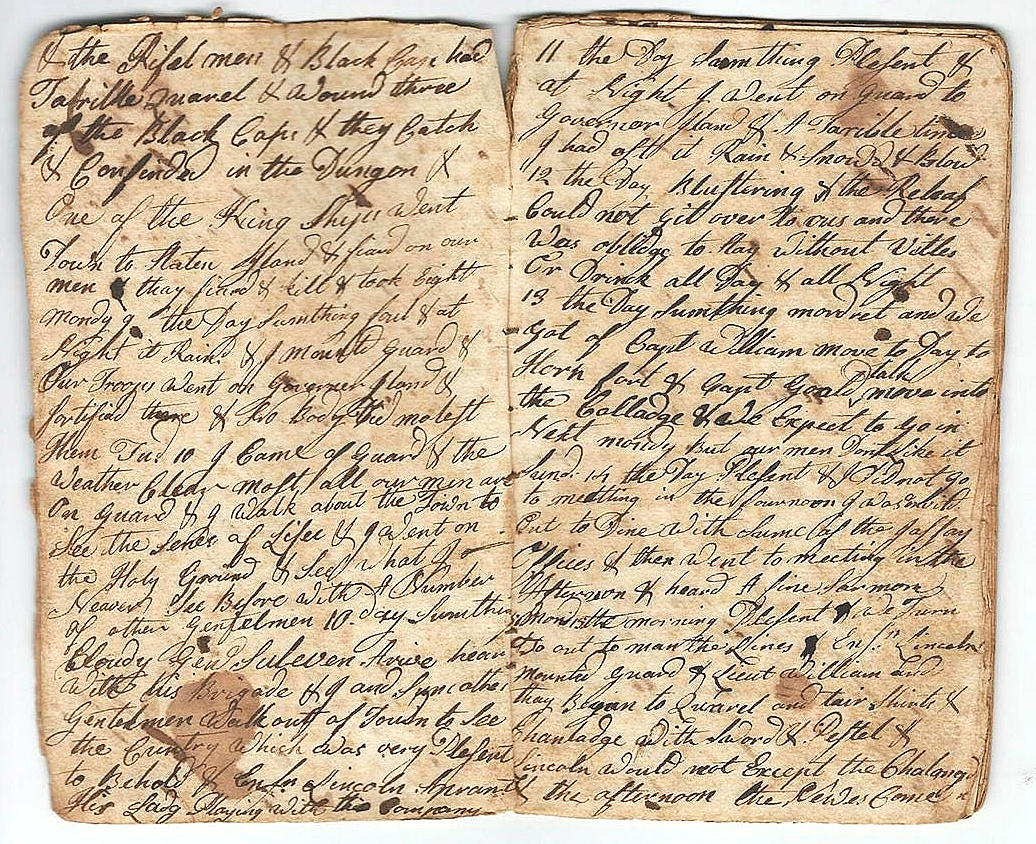 & the Rifel men & Black Caps had
Tarrible Quarel & Wound three
of the Black Caps & they Catch
& Confinded in the Dungon &
One of the King Ships Went
Down to Staten Island & fiard on our
men & thay fiard & kill & took Eight
Mondy 9 the Day Sumthing foul & at
Night it Rain & I mount Guard &
Our Troops Went on Governer Iland &
fortified there & No Body Did molest
them Tus 10 I Came of Guard & the
Weather Clear most all our men are
On Guard & I Walk about the Town to
See the Senes of Lifes & I Went on
the Holy Ground & See What I
Neaver See Before With A Number
of other Gentelmen 10 day Sumthing
Cloudy Genl Suleven Arive hear
With his Brigade & I and Sum other
Gentelmen Walk out of Town to See
the Cuntry Which Was very Plesent
to Behold & Ensn Lincoln
His Lady Playing With the Company
11 the Day Sumthing Plesent &
at Night I Went on Guard to
Governor Iland & A Tarible time
I had off it Rain & Snowd & Blow
12 the Day Blustering & the Releaf
Could not Git over to vus and there
Was obllidge to Stay Without Vitles
Or Drink all Day & all Night
13 the Day Sumthing modret and We
Got of Capt William move to Day to
Horn fort & Capt Goodale
talk
move into
the Colladge & We Expect to Go in
Next mondy But our men Dont like it
Sund: 14 the Day Plesent & I Did not Go
to meetting in the fournoon I was
Out to Dine With Sume of the
Offices & then Went to meeting in the
Afternoon & heard A fine Sarmon
Mon 15 the morning Plesent & We Turn
Do out to man the Lines & Ensn Lincoln
mounted Guard & Lieut William and
thay Began to Quarel and tair Shirts &
Chantadge With Sword & Pestel &
Lincoln Would not Except the Chalange
& the afternoon the Newes Come